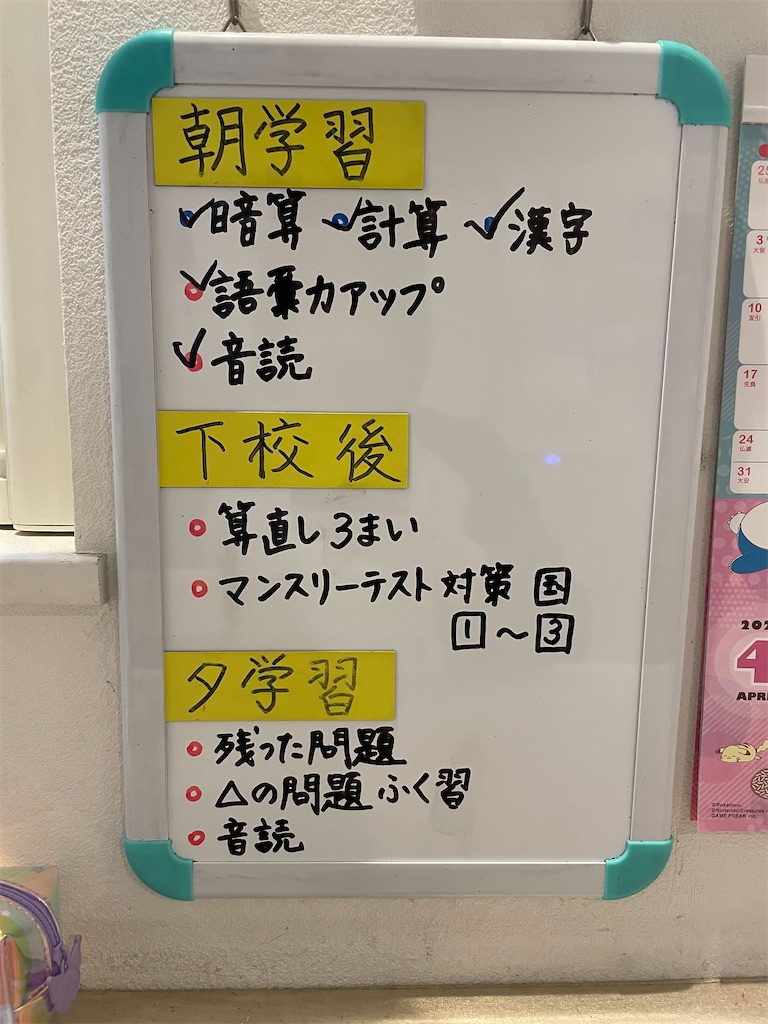 朝学習
暗算 計算 漢字
語彙力アップ
音読
下校後
算直し 3まい
マンスリーテスト対策 国
1～3
夕学習
残った問題
△の問題ふく習
音読
25
仏滅
3
大安
10
友引
17
先負
24
仏滅
31
大安
202
4
APRI
©Pokémon.
©Nintendo/Creatures
GAME FREAK inc.